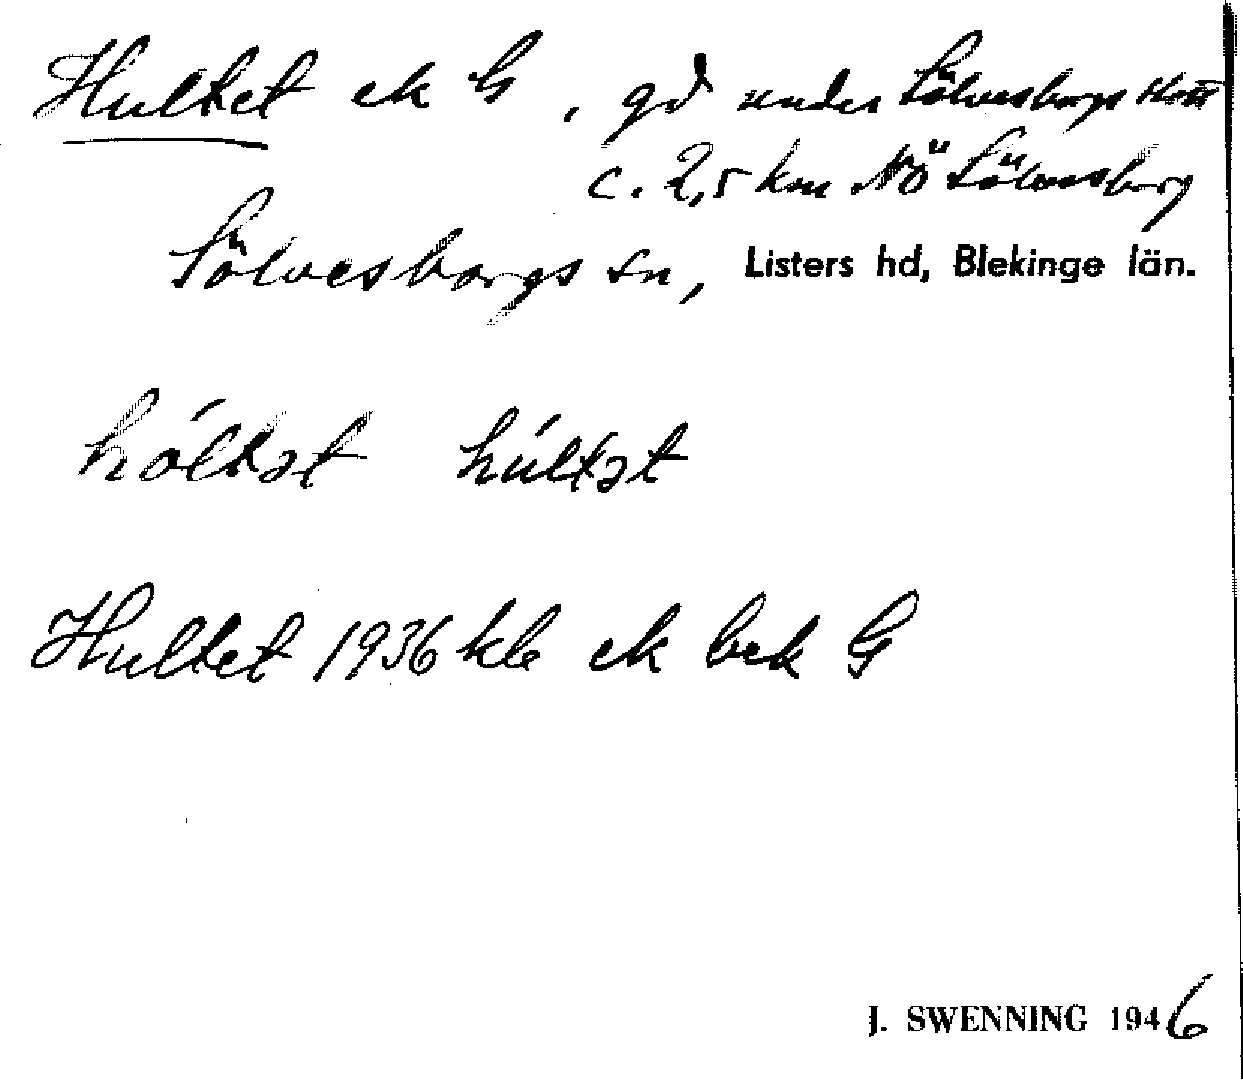 Hultet ek G, gd under Sölvesborgs slott
c. 2,5 km NÖ Sölvesborg
Sölvesborgs sn, Listers hd, Blekinge län.
hóltət húltət
Hultet 1936 kle ek bek G
J. SWENNING 1946